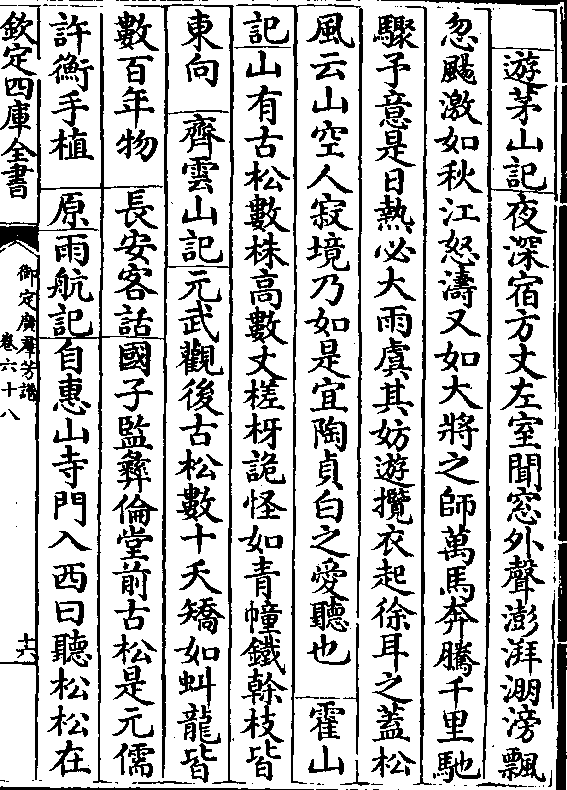 遊茅山記夜深宿方丈左室聞窓外聲澎湃淜滂飄
忽颺激如秋江怒濤又如大將之師萬馬奔騰千里馳
驟予意是日熱必大雨虞其妨遊攬衣起徐耳之蓋松
風云山空人寂境乃如是宜陶貞白之愛聽也 霍山
記山有古松數株高數丈槎枒詭怪如青幢鐵榦枝皆
東向 齊雲山記元武觀後古松數十夭矯如虯龍皆
數百年物 長安客話國子監彞倫堂前古松是元儒
許衡手植 原雨航記自惠山寺門入西曰聽松松在
欽定四庫全書
御定廣羣芳譜
卷六十八
十六